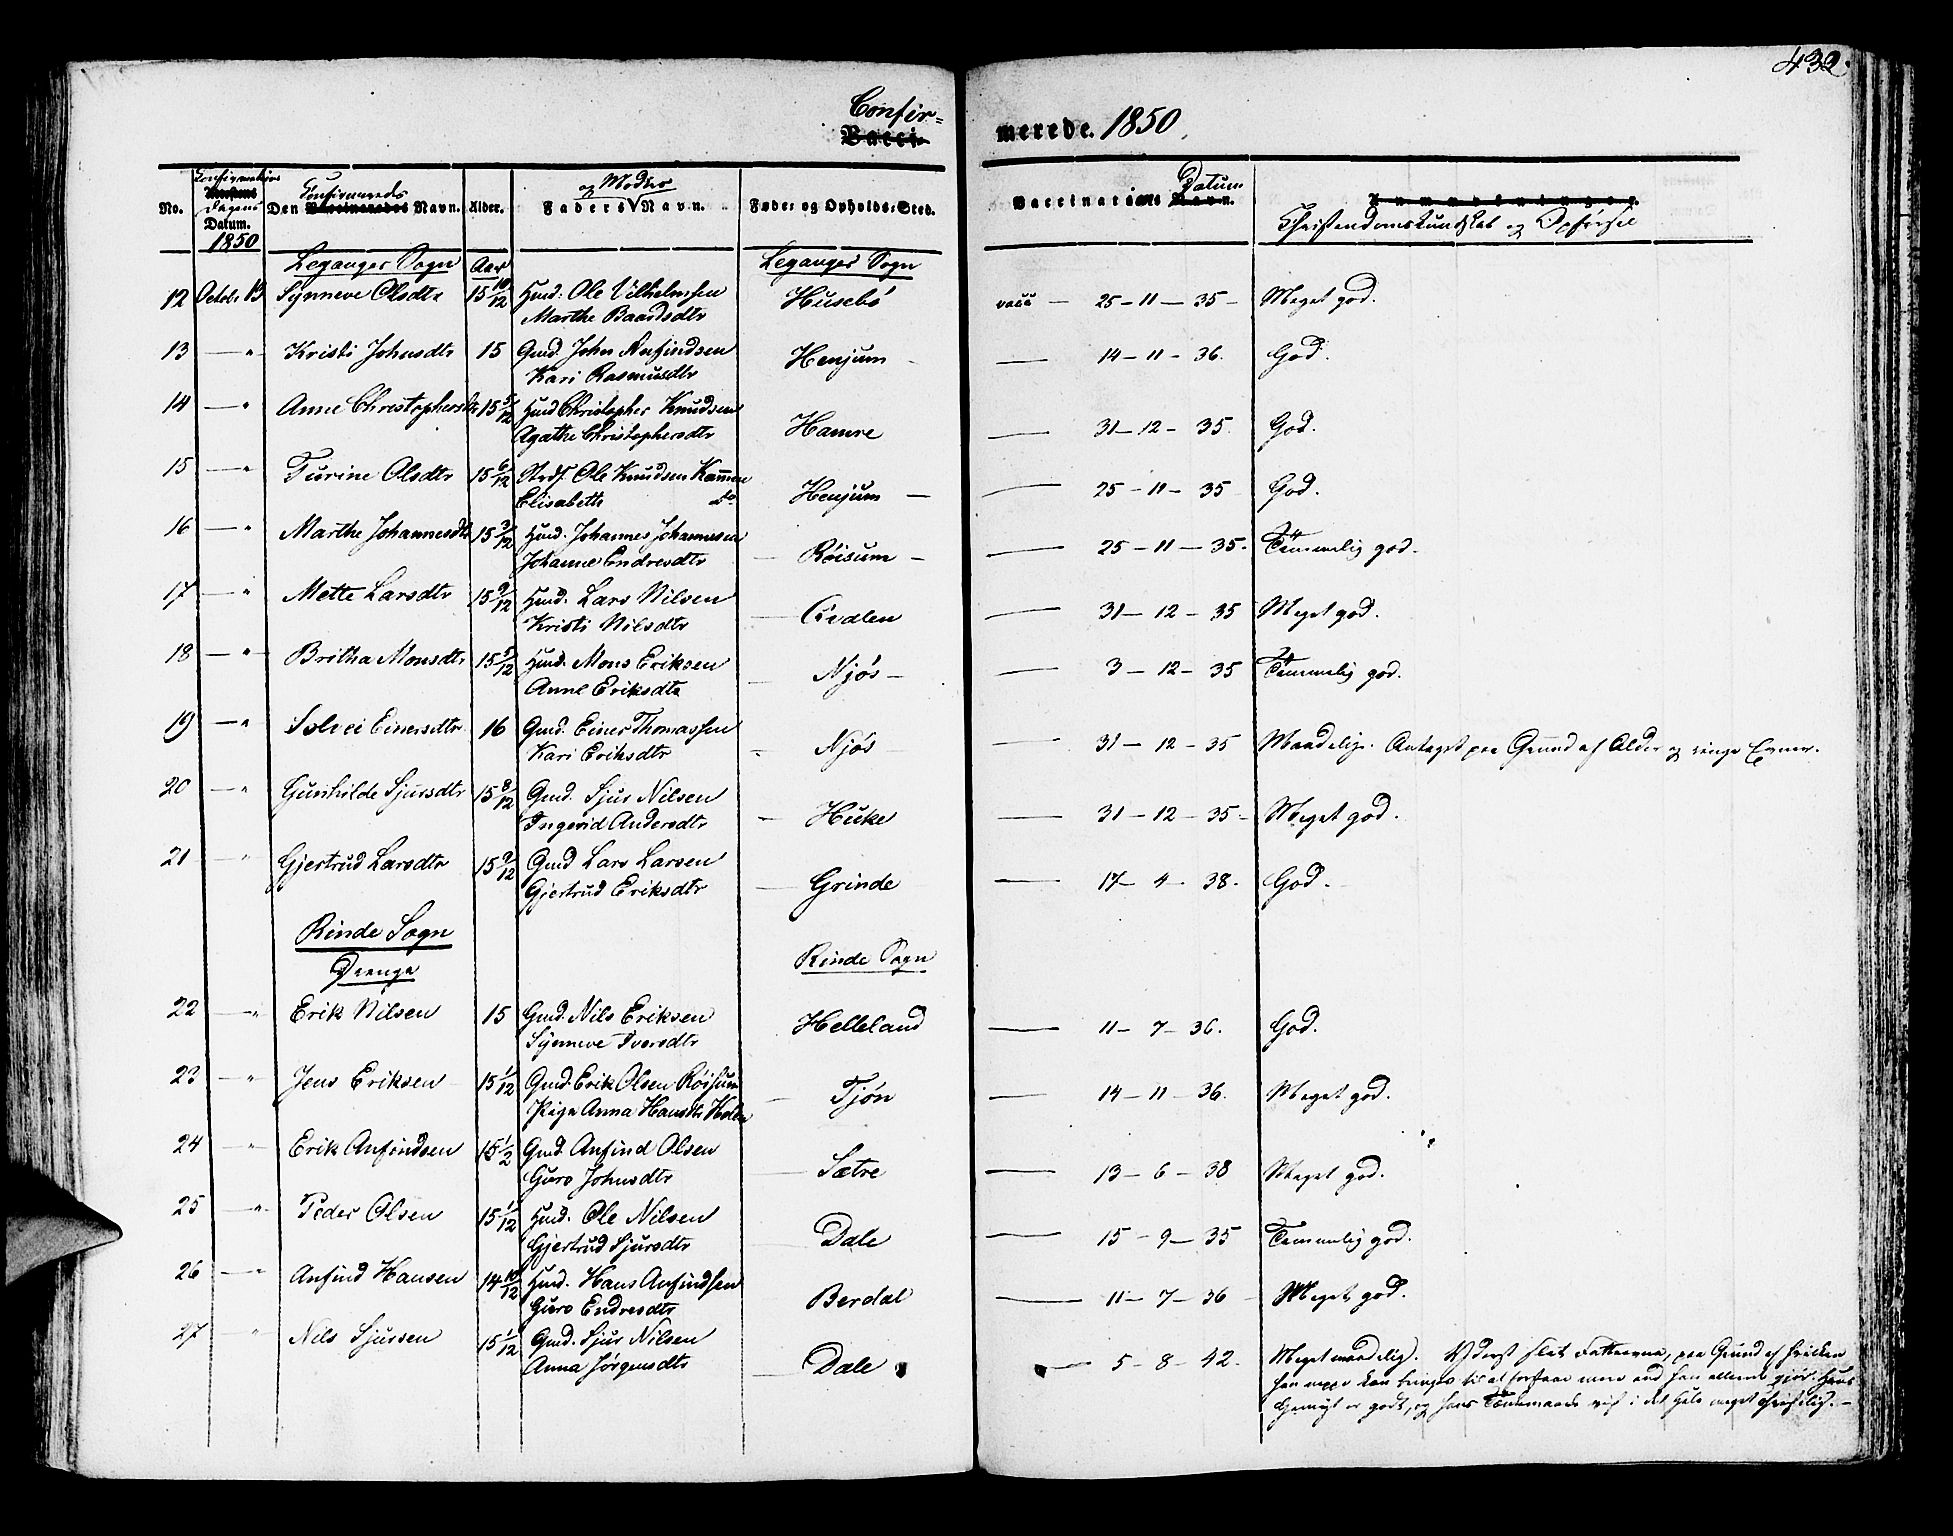 432.
Confir=
Vacci-
merede. 1850.
No. Confirmations Dagens Datum. 1850
Den Confirmeredes Vaccineredes Navn.
Alder.
Faders og Modres Navn.
Føde- og Opholds-Sted.
Vaccinations Datum Navn.
Anmærkninger.
Christendomskundskab og Opførsel
Leganger Sogn Aar Leganger Sogn
12 Octob. 13 Synneve Olsdtr 15 10/12 Huusmd. Ole Vilhelmsen Husebø vacc — 25 - 11 - 35 - Meget god.
Marthe Baardsdtr
13 — " Kristi Johnsdtr 15 Gmd. John Anfindsen Henjum — 14 - 11 - 36. God.
Kari Rasmusdtr
14 — " Anne Christophersdtr 15 5/12 Huusmd Christopher Knudsen Hamre — 31 - 12 - 35. God.
Agathe Christophersdtr
15 — " Turine Olsdtr 15 6/12 Strds. Ole Knudsen Henjum — 25 - 11 - 35 God.
Elisabeth do
16 — " Marthe Johannesdtr 15 3/12 Huusmd. Johannes Johannesen Røisum — 25 - 11 - 35. Temmelig god.
Johanne Endresdtr
17 — " Mette Larsdtr 15 9/12 Huusmd. Lars Nilsen — 31 - 12 - 35 Meget god.
Kristi Nilsdtr
18 — " Britha Monsdtr 15 Huusmd. Mons Eriksen Njøs — 3 - 12 - 35 Temmelig god.
Anne Eriksdtr
19 — " Solvei Einersdtr 16 Gmd. Einer Thomassen Njøs — 31 - 12 - 35 Maadelig. Antaget paa Grund af Alder og ringe Evner.
Kari Eriksdtr
20 — " Gunhilde Sjursdtr 15 8/12 Gmd. Sjur Nilsen Huke — 31 - 12 - 35 - Meget god.
Ingerid Andersdtr
21 — " Gjertrud Larsdtr 15 9/12 Gmd Lars Larsen Grinde — 17 - 4 - 38. God.
Gjertrud Eriksdtr
Rinde Sogn Rinde Sogn
Drenge
22 — " Erik Nilsen 15 Gmd. Nils Eriksen Helleland — 11 - 7 - 36. God.
Synneve Iversdtr
23 — " Jens Eriksen 15 1/12 Gmd. Erik Olsen Røisum Tjøn — 14 - 11 - 36. Meget god.
Pige Anna Hansdtr
24 — " Erik Anfindsen 15 1/2 Gmd. Anfind Olsen Sætre — 13 - 6 - 38 Meget god.
Guro Johnsdtr
25 — " Peder Olsen 15 1/12 Huusmd. Ole Nilsen Dale — 15 - 9 - 35 Temmelig god.
Gjertrud Sjursdtr
26 — " Anfind Hansen 14 10/12 Huusmd. Hans Anfindsen Berdal — 11 - 7 - 36 Meget god.
Guro Endresdtr
27 — " Nils Sjursen 15 1/12 Gmd. Sjur Nilsen Dale — 5 - 8 - 42. Meget maadelig. Yderst slet Fatteevne, paa Grund af hvilken
Anna Jørgensdtr han neppe kan bringes til at forstaae mere end han allerede gjør. Hans
Gemyt er godt, og hans i det Hele meget christelig. —